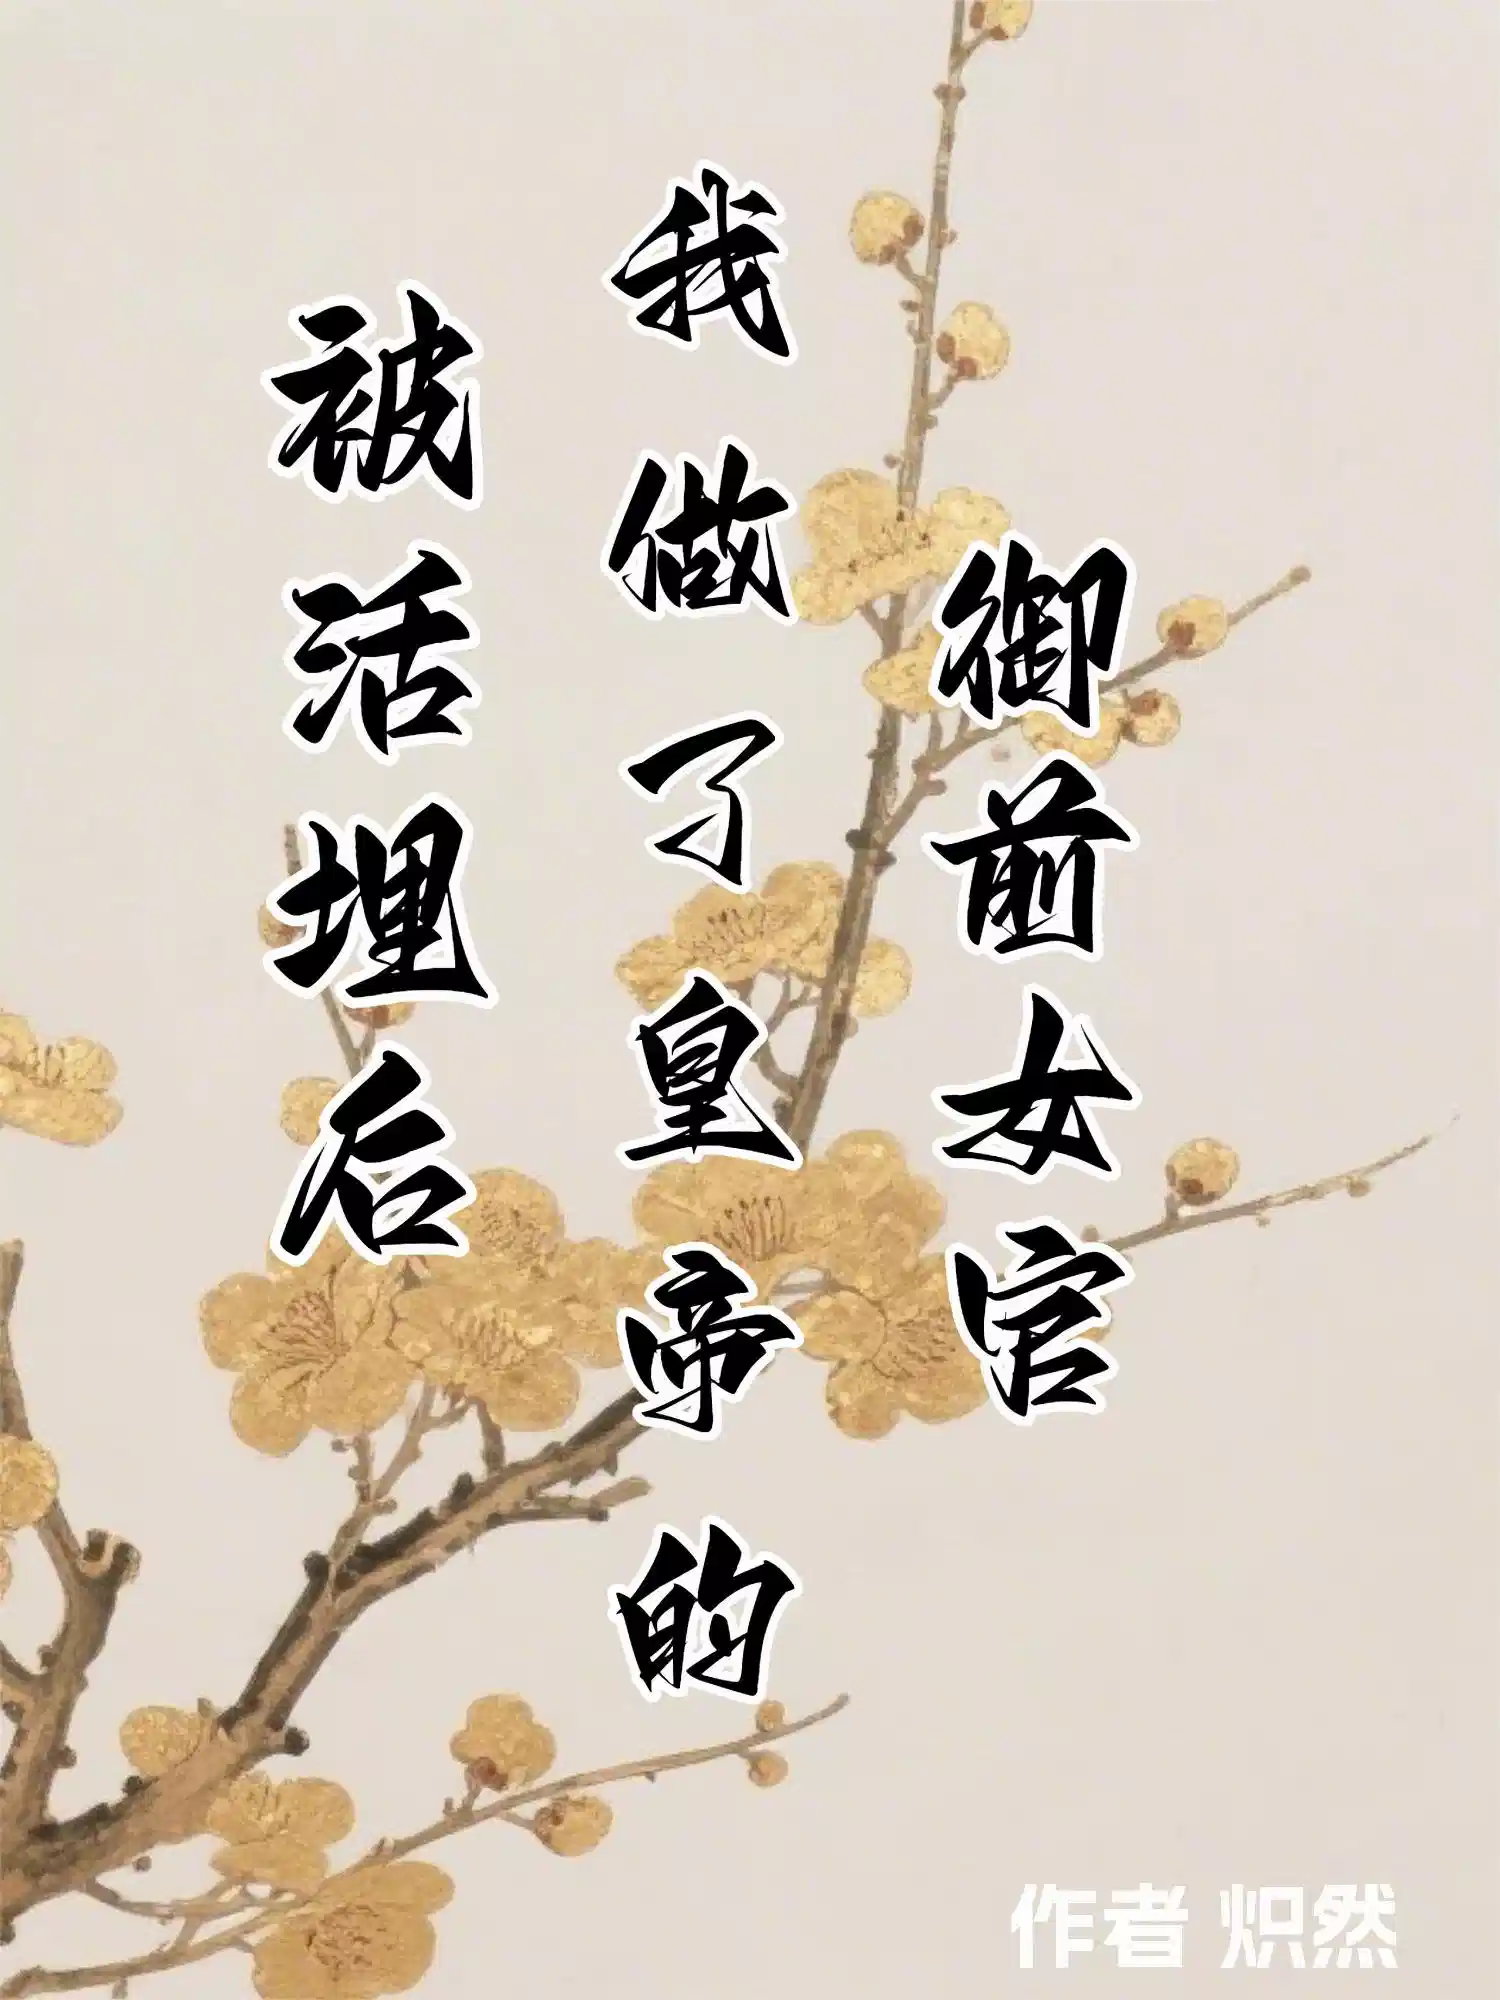 被活埋后
我做了皇帝的
御前女官
作者 炽然